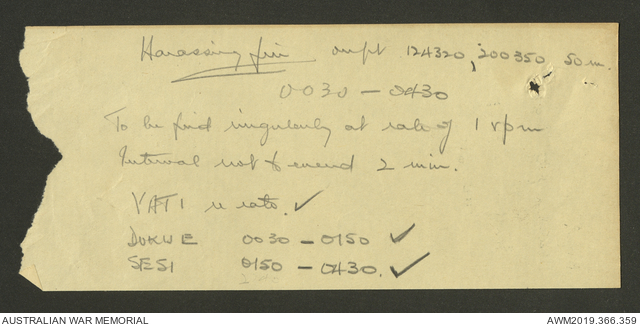 Harassing fire on pt 124320, 200350 50 m.
0030 - 0430
To be fired irregularly at rate of 1 rpm
Interval not to exceed 2 min.
VATI
DUKWE 0030 - 0150 ✓
SESI 0150 - 0430. ✓
AUSTRALIAN WAR MEMORIAL
AWM2019.366.359